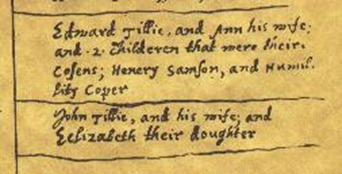 Edward Tillie, and Ann his wife:
and ·2· Childeren that were their
Cosens; Henery Samson, and Humil-
lity Coper
John Tillie, and his wife; and
Eelizabeth their doughter